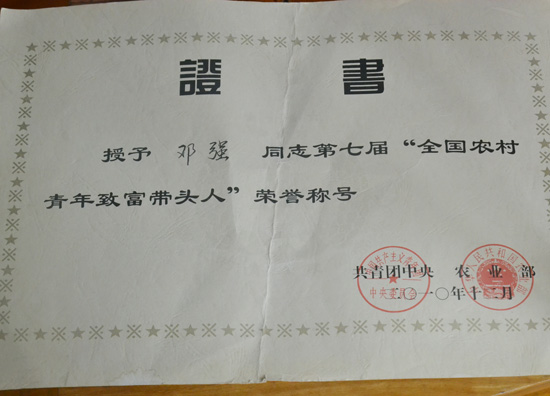 證書
授予 邓强 同志第七届“全国农村
青年致富带头人”荣誉称号
共青团中央 农业部
二〇一〇年十二月